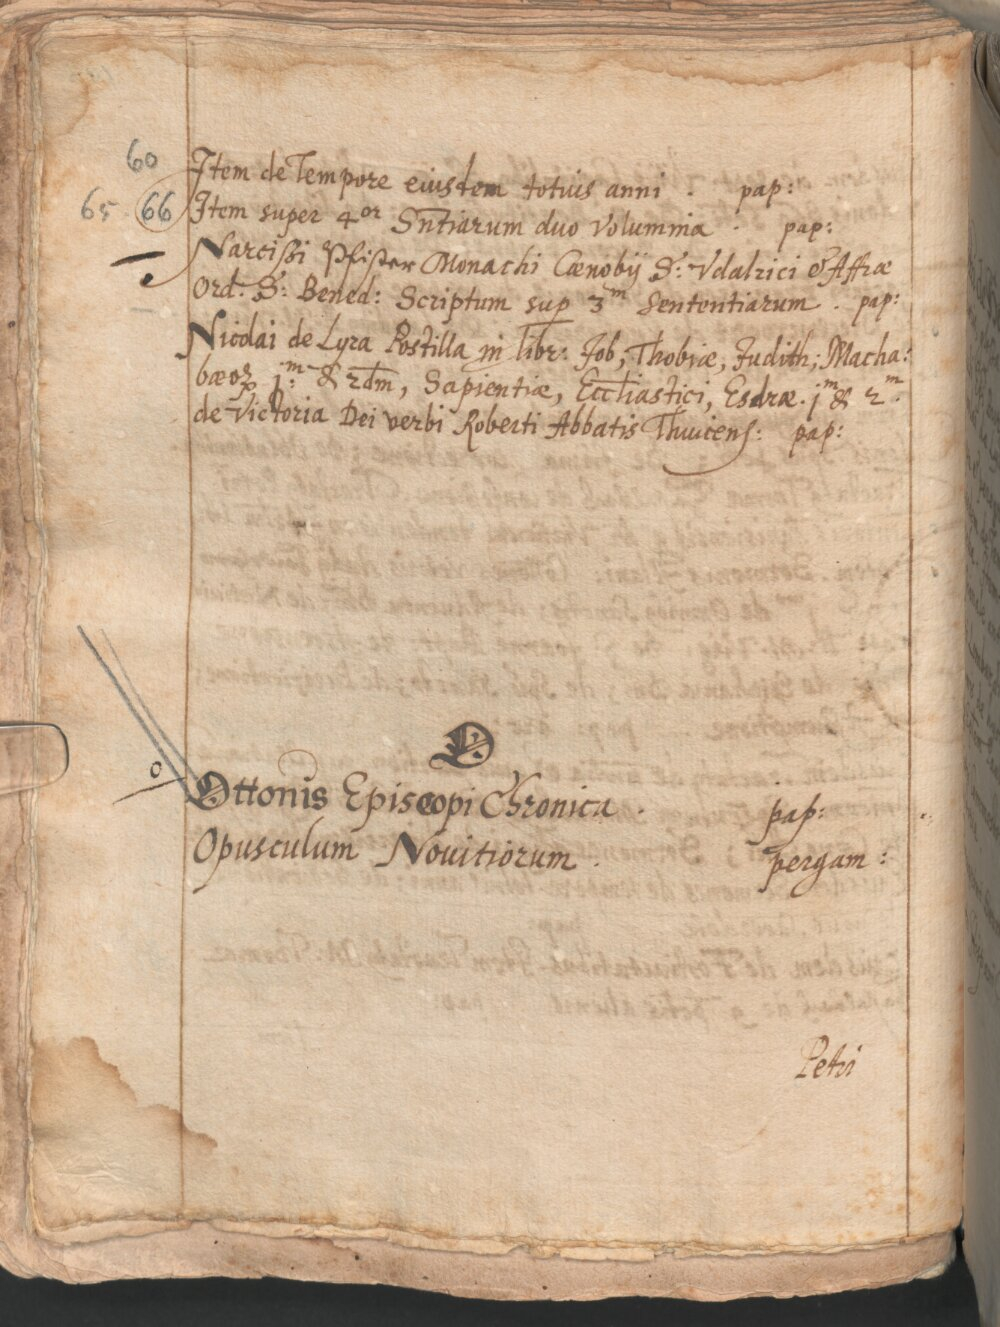 60 Item de Tempore eiusdem totius anni . pap:
65. 66 Item super 4or Sntiarum duo Volumina . pap:
Narcissi Pfister Monachi Cænobÿ S: Vdalrici & Affræ
Ord. S: Bened: Scriptum sup 3m Sententiarum . pap:
Nicolai de Lyra Postilla in libr: Job, Thobiæ, Judith, Macha:
bæoꝝ 1m & 2dm, Sapientiæ, Eccliastici, Esdræ. 1m & 2m.
de Victoria Dei verbi Roberti Abbatis Thuicens: pap:
O
o Ottonis Episcopi Chronica . pap:
Opusculum Novitiorum . pergam:
Petri